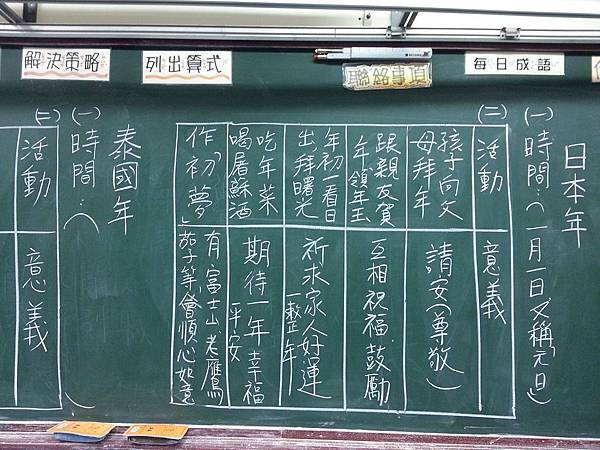 解決策略
列出算式
聯絡事項
每日成語
日本年
(一)時間:(一月一日又稱「元日」)
(二)
活動
意義
孩子向父
母拜年
請安(尊敬)
跟親友賀
年,領年玉
互相祝福、鼓勵
年初一看日
出,拜曙光
祈求家人好運
整年
吃年菜
喝屠蘇酒
期待一年幸福
平安
作「初夢」
有富士山、老鷹、
茄子等,會順心如意
泰國年
(一)時間:( )
(二)
活動
意義